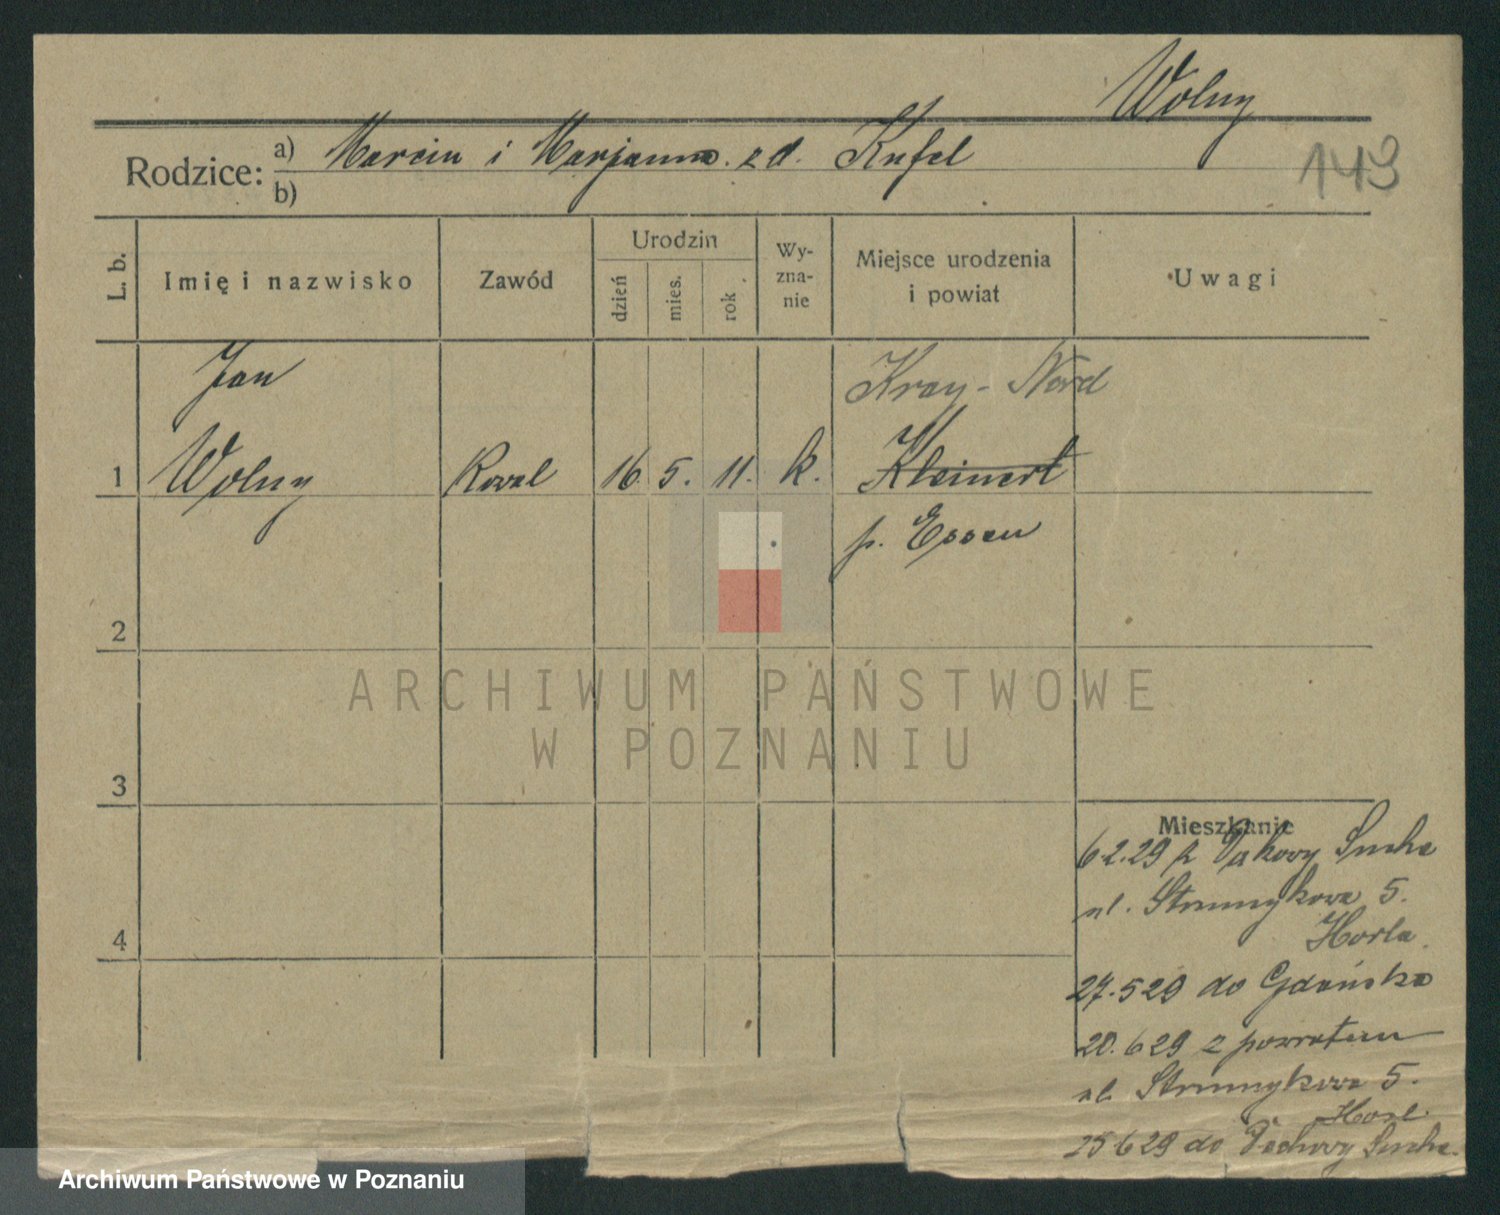 Wolny
149
Rodzice: a) Marcin i Marjanna z d. Kufel
b)
L. b. Imię i nazwisko Zawód Urodzin dzień mies. rok Wy-zna-nie Miejsce urodzenia i powiat Uwagi
Jan Kray-Nord
1 Wolny Kowal 16 5. 11. k. Kleinert
p. Essen
2
ARCHIWUM PAŃSTWOWE
W POZNANIU
3
Mieszkanie
6.2.29 z Suche
ul. Strumykowa 5.
27.5 29 do Gdańska
20.6 29 z powrotem
4
ul. Strumykowa 5.
25 6 29 do Suche.
Archiwum Państwowe w Poznaniu